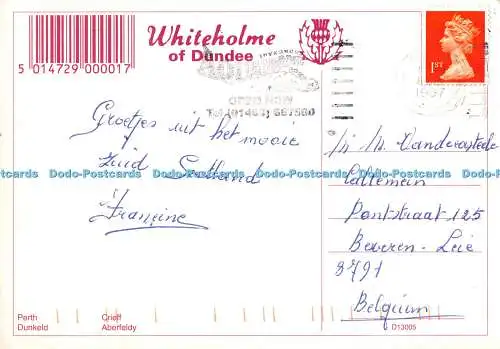 Whiteholme
of Dundee
5 014729 000017
OPEN NOW
Tel (01463) 667500
1ST
1997
Groetjes uit het mooie
Zuid Scotland
Francine
Pontstraat 125
Beveren-Leie
8791
Belgium
Dodo-Postcards Dodo-Postcards Dodo-Postcards Dodo-Postcards Dodo-Postcards
Perth Crieff
Dunkeld Aberfeldy
D13005